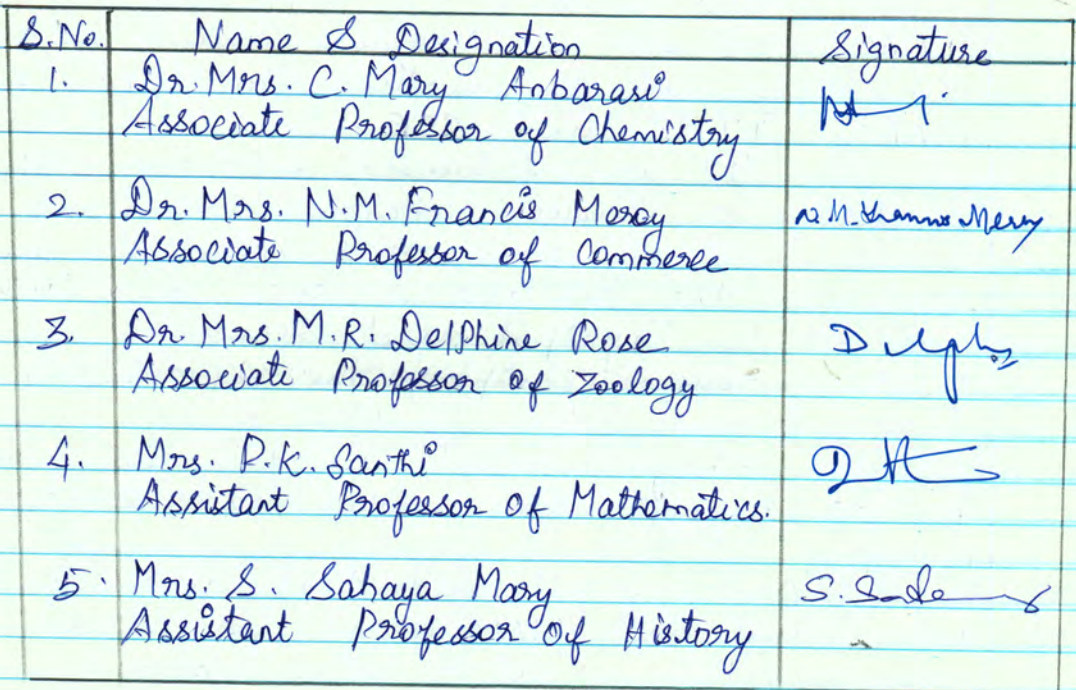 S.No. Name & Designation Signature
1. Dr. Mrs. C. Mary Anbarasi
Associate Professor of Chemistry
2. Dr. Mrs. N.M. Francis Mercy N.M. Francis Mercy
Associate Professor of Commerce
3. Dr. Mrs. M.R. Delphine Rose
Associate Professor of Zoology
4. Mrs. P.K. Santhi
Assistant Professor of Mathematics.
5. Mrs. S. Sahaya Mary
Assistant Professor of History